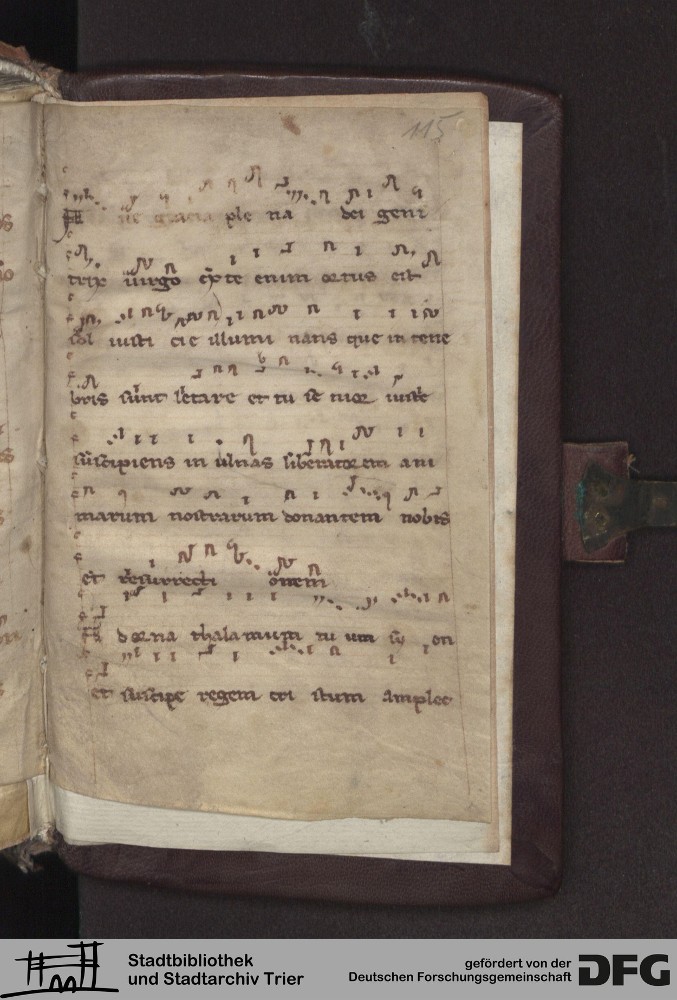 115
gracia ple na dei geni
trix virgo ex te enim ortus est
sol iusti cie illumi nans que in tene
bris sunt letare et tu se nior iuste
suscipiens in ulnas liberatorem ani
marum nostrarum donantem nobis
et resurrecti onem
A dorna thalamum tu um sy on
et suscipe regem cri stum amplec
Stadtbibliothek
und Stadtarchiv Trier
gefördert von der
Deutschen Forschungsgemeinschaft
DFG